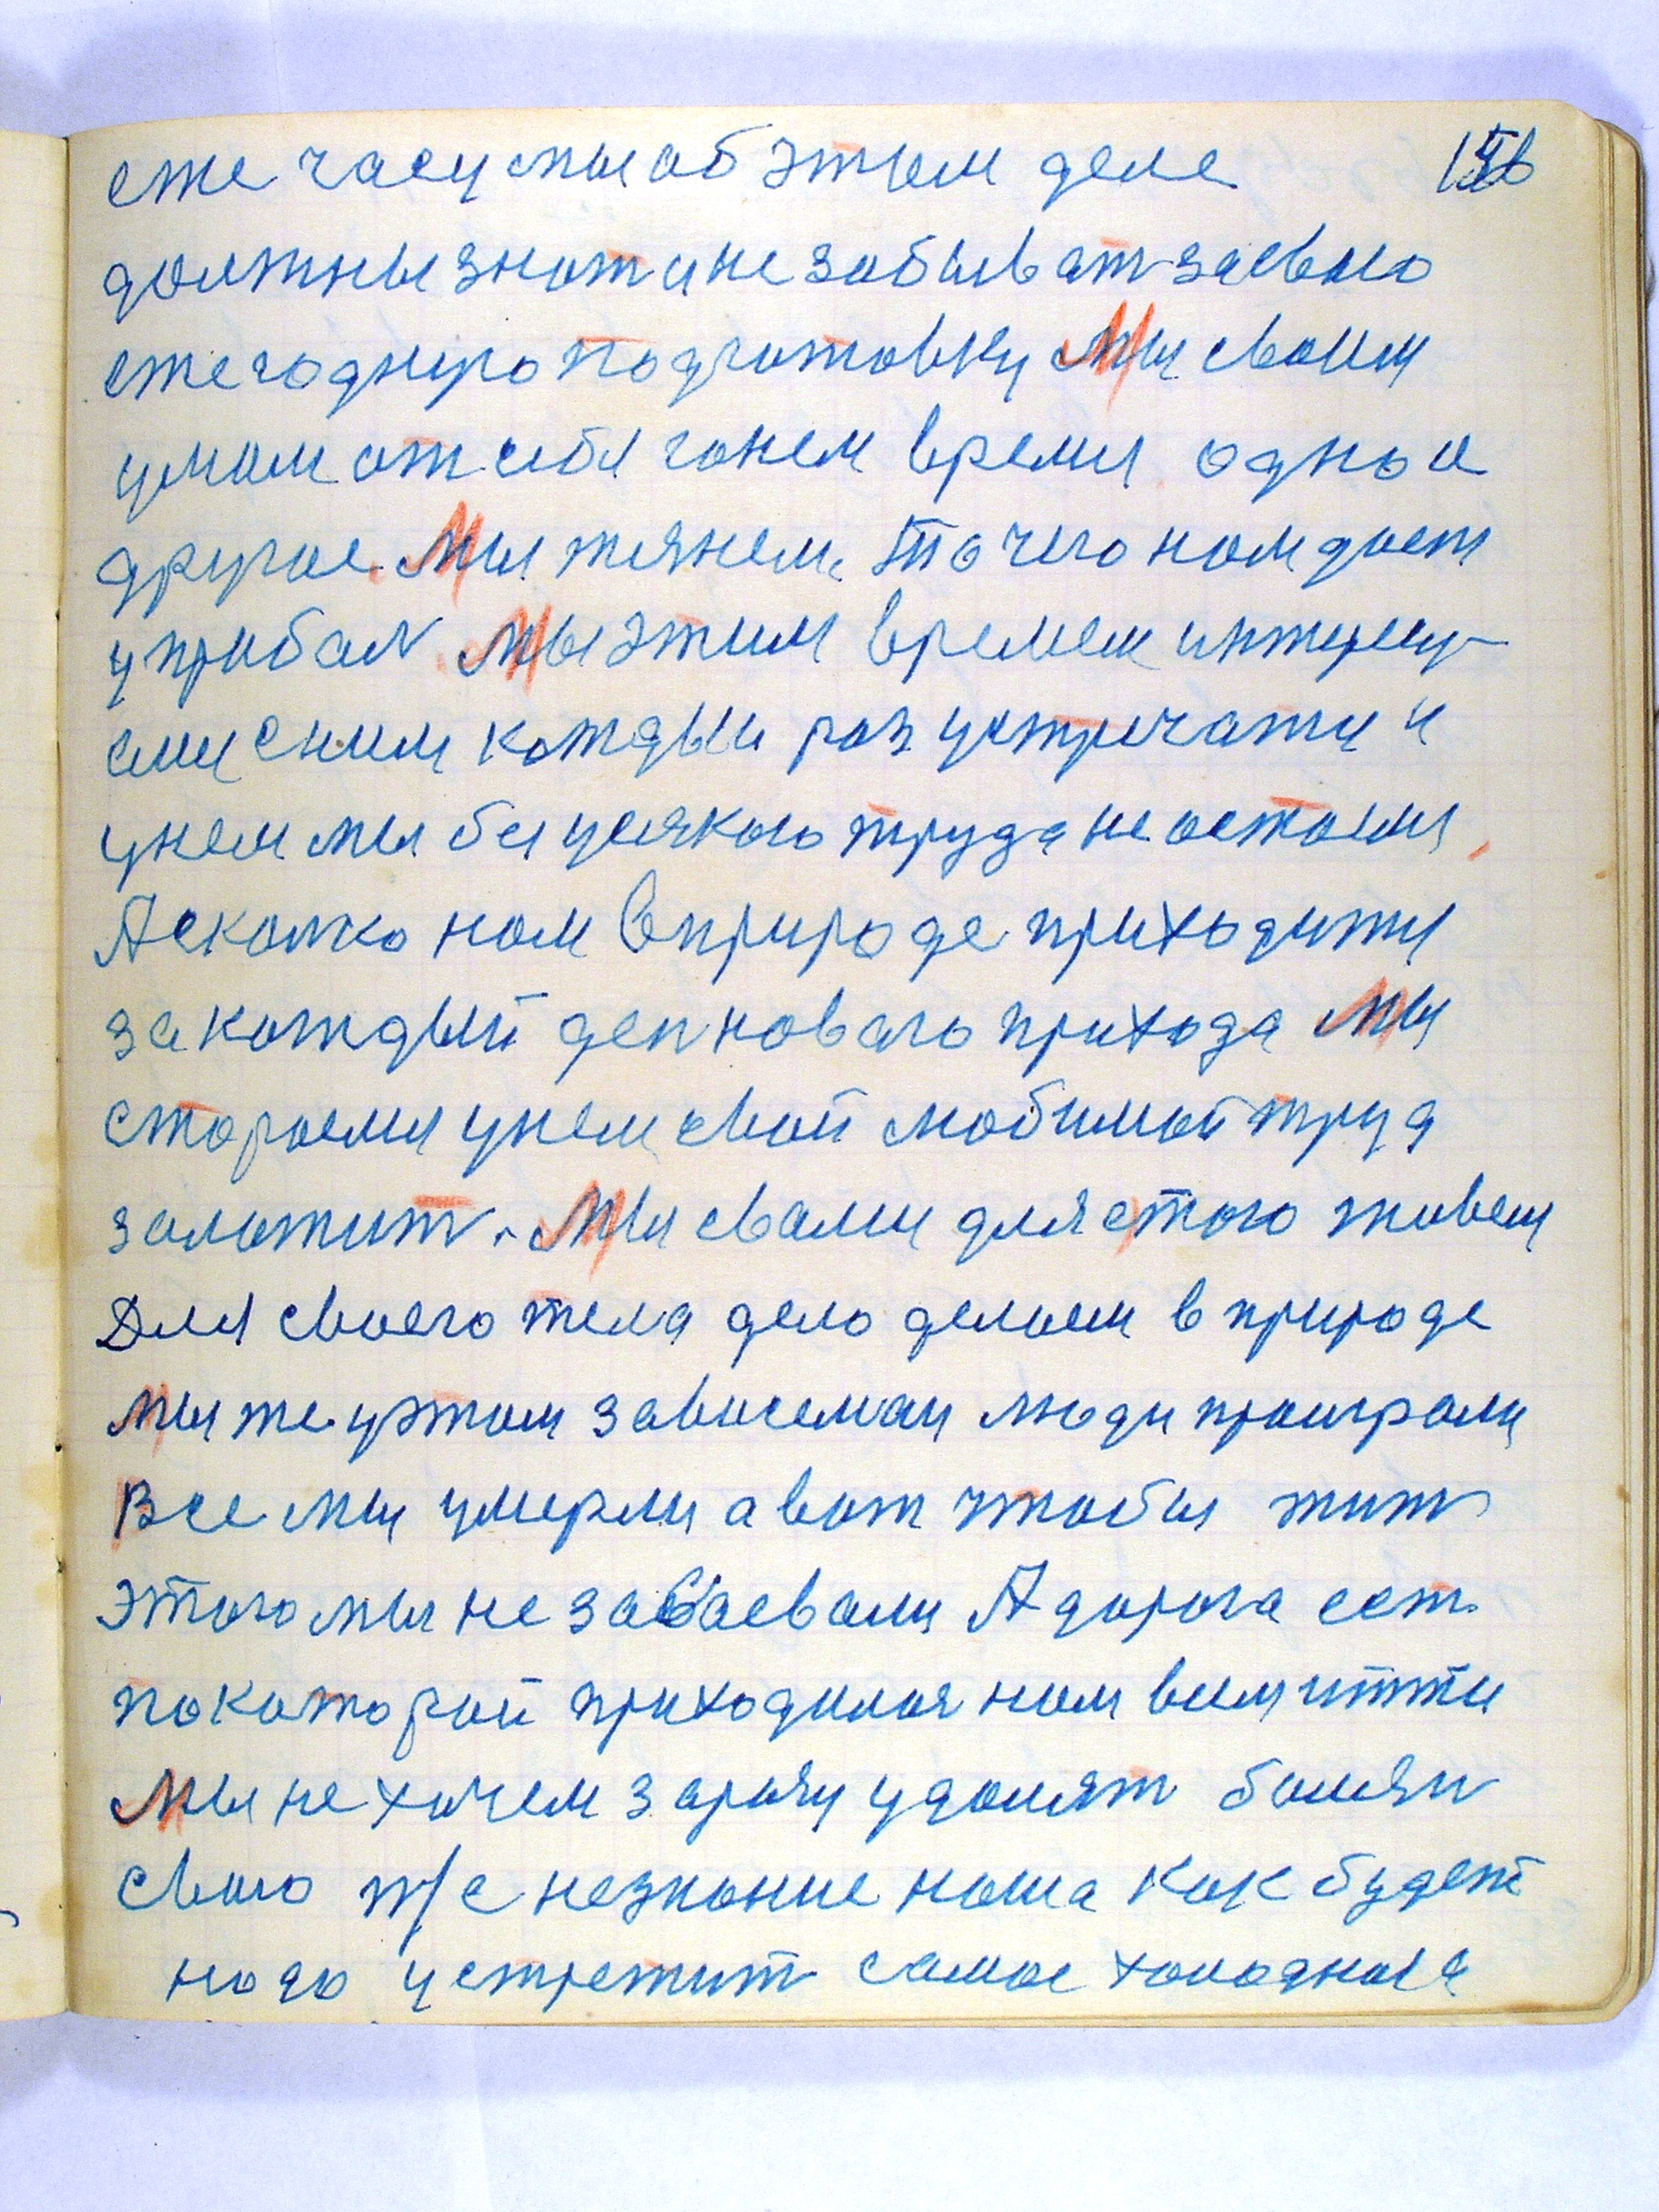 еже часу мы об этим деле
должны знат и не забыват за свою
ежегодную подготовку Мы своим
умом от себя гонем время одно а
другое. Мы тянем. То чего нам дает
у прибал Мы этим времем интересу-
емси с ним каждыи раз устричатци и
унем мы без усякого труда не остаемя.
А сколко нам в природе приходится
за каждый ден новаго прихода Мы
стараемя унем свой любимой труд
заложит. Мы свами для етого живем
Для своего тела дело делаем в природе
мы же уэтом зависемаи люди проиграли
Все мы умерли а вот чтобы жит
этого мы не заваевали А дорога ест
по каторой приходилоя нам вим итти
Мы не хочем зарию удолят болян
свою т/с незнание наша как будет
надо устретит самое холодная